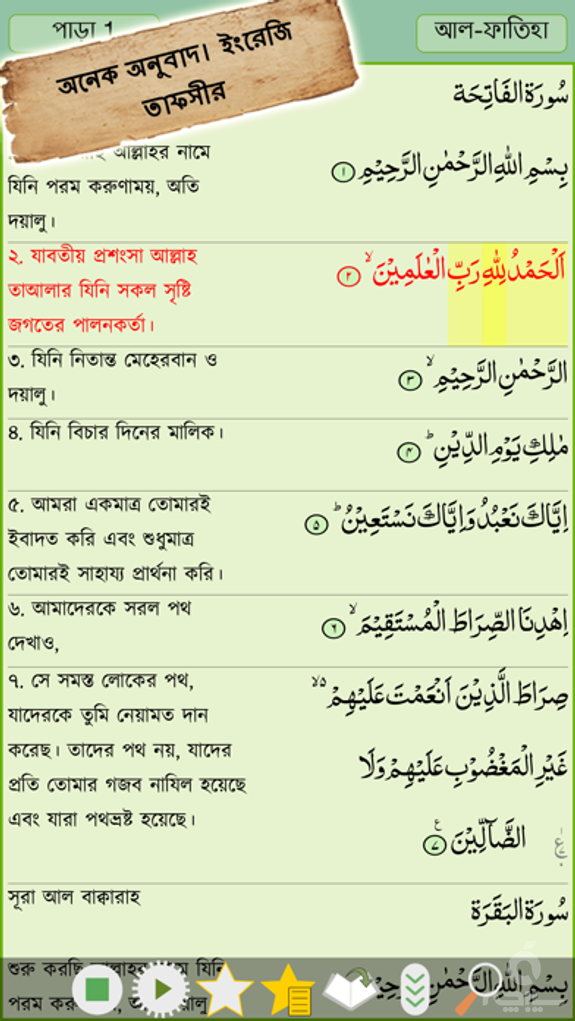 পাড়া 1
আল-ফাতিহা
অনেক অনুবাদ। ইংরেজি
তাফসীর
سُورَةُ الفَاتِحَة
আল্লাহর নামে
যিনি পরম করুণাময়, অতি
দয়ালু।
بِسْمِ اللهِ الرَّحْمٰنِ الرَّحِيْمِ ۝۱
২. যাবতীয় প্রশংসা আল্লাহ
তাআলার যিনি সকল সৃষ্টি
জগতের পালনকর্তা।
اَلْحَمْدُ لِلّٰهِ رَبِّ الْعٰلَمِيْنَ ۙ ۝۲
৩. যিনি নিতান্ত মেহেরবান ও
দয়ালু।
الرَّحْمٰنِ الرَّحِيْمِ ۙ ۝۳
৪. যিনি বিচার দিনের মালিক।
مٰلِكِ يَوْمِ الدِّيْنِ ؕ ۝۴
৫. আমরা একমাত্র তোমারই
ইবাদত করি এবং শুধুমাত্র
তোমারই সাহায্য প্রার্থনা করি।
اِيَّاكَ نَعْبُدُ وَاِيَّاكَ نَسْتَعِيْنُ ؕ ۝۵
৬. আমাদেরকে সরল পথ
দেখাও,
اِهْدِنَا الصِّرَاطَ الْمُسْتَقِيْمَ ۙ ۝۶
৭. সে সমস্ত লোকের পথ,
যাদেরকে তুমি নেয়ামত দান
করেছ। তাদের পথ নয়, যাদের
প্রতি তোমার গজব নাযিল হয়েছে
এবং যারা পথভ্রষ্ট হয়েছে।
صِرَاطَ الَّذِيْنَ اَنْعَمْتَ عَلَيْهِمْ ۙ۬
غَيْرِ الْمَغْضُوْبِ عَلَيْهِمْ وَلَا
الضَّآلِّيْنَ ۝۷
সূরা আল বাক্বারাহ
سُورَةُ البَقَرَة
শুরু করছি আল্লাহর নামে যিনি
পরম
بِسْمِ اللهِ الرَّحْمٰنِ